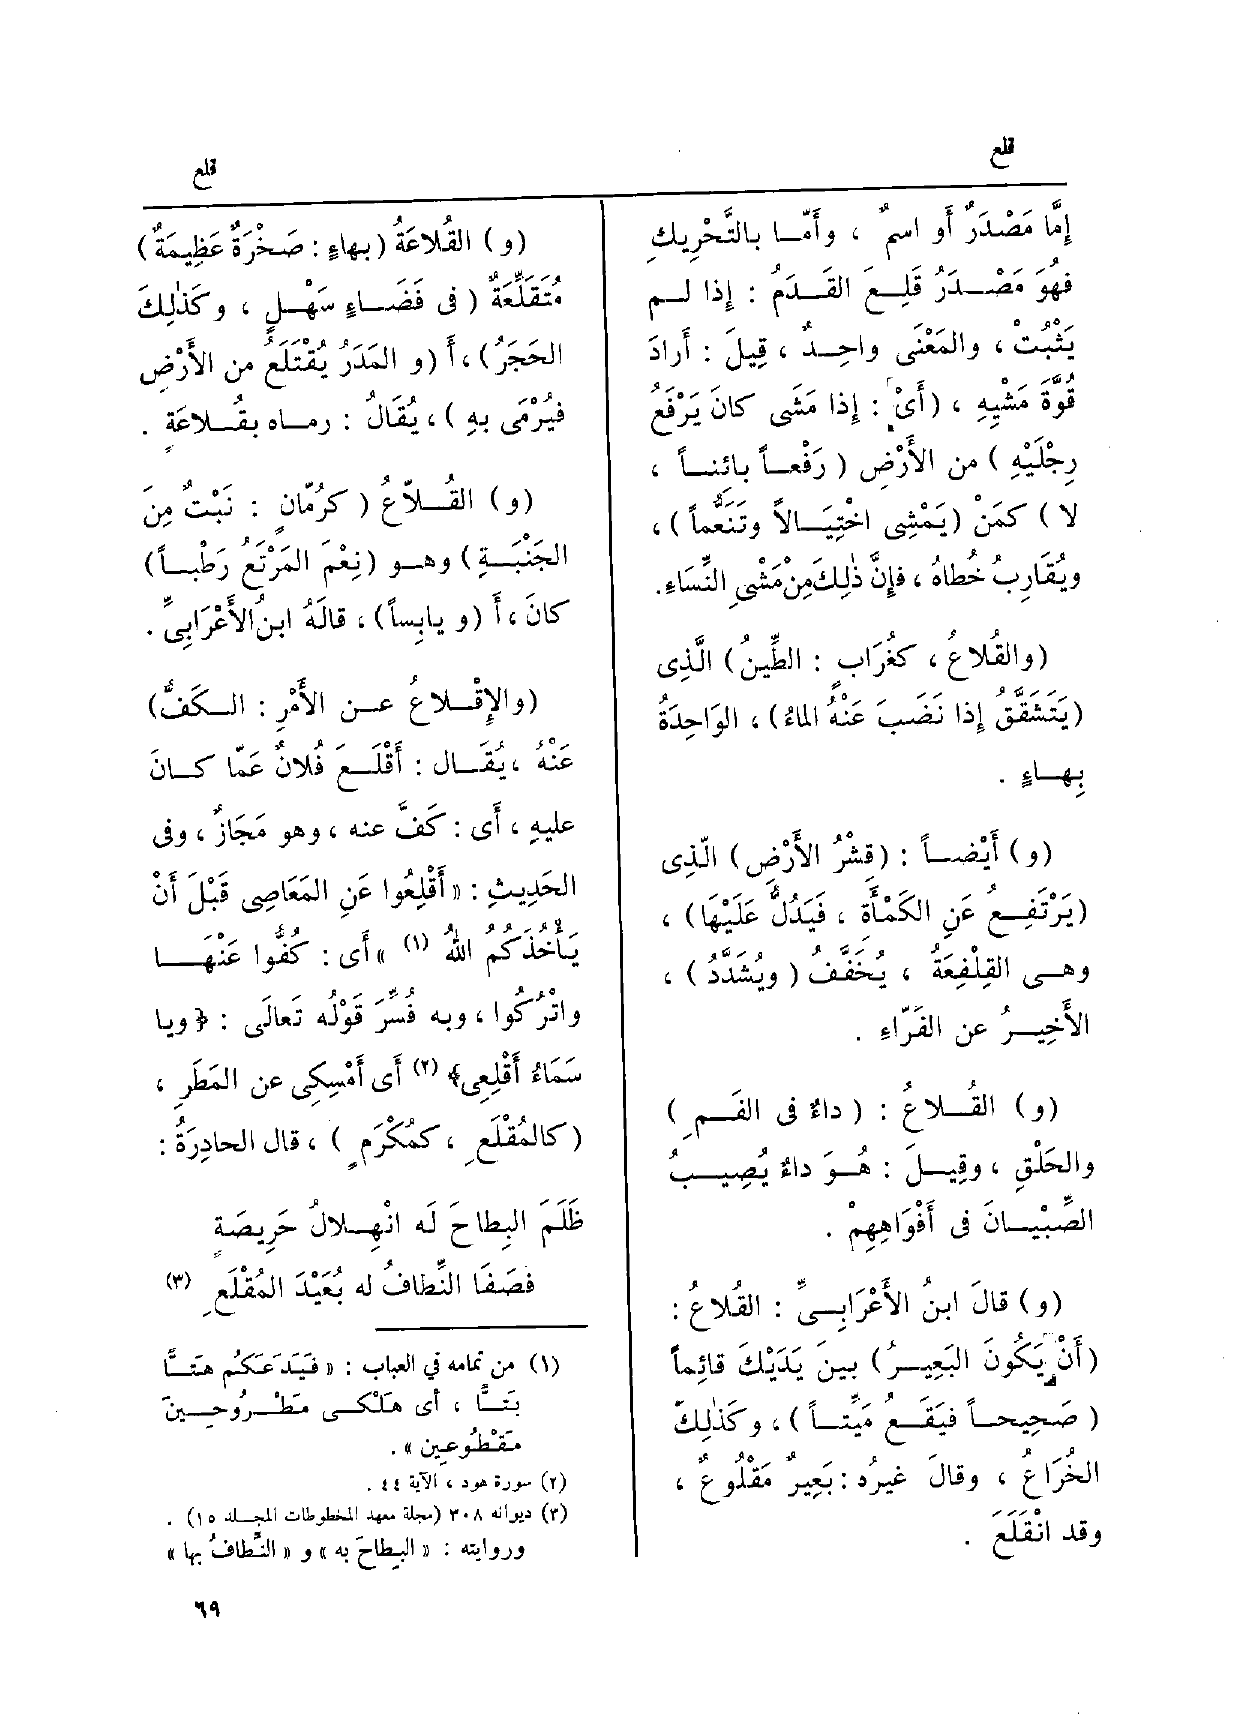 قلع
قلع
إمَّا مَصْدَرٌ أَو اسمٌ ، وأَمّــا بالتَّحْرِيكِ
فهُوَ مَصْـــدَرُ قَلِــعَ القَــدَمُ : إذا لــم
يَثْبُتْ ، والمَعْنَى واحِــدٌ ، قِيلَ : أَرادَ
قُوَّةَ مَشْيِهِ ، (أَىْ : إذا مَشَى كانَ يَرْفَعُ
رِجْلَيْهِ ) من الأَرْضِ ( رَفْعــاً بائنــاً ،
لا ) كمَنْ (يَمْشِى اخْتِيَــالاً وتَنَعُّماً ) ،
ويُقَارِبُ خُطاهُ ، فإنَّ ذٰلِكَ مِنْ مَشْىِ النِّسَاءِ.
(والقُلاعُ ، كغُرَابٍ : الطِّينُ ) الَّذِى
(يَتَشَقَّقُ إذا نَضَبَ عَنْهُ الماءُ) ، الوَاحِدَةُ
بِهــاءٍ .
(و ) أَيْضــاً : (قِشْرُ الأَرْضِ ) الّذِى
(يَرْتَفِــعُ عَنِ الكَمْأَةِ ، فيَدُلُّ عَلَيْهَا) ،
وهــى القِلْفِعَةُ ، يُخَفَّفُ ( ويُشَدَّدُ ) ،
الأَخِيــرُ عن الفَرّاءِ .
(و ) القُــلاعُ : ( داءٌ فى الفَــمِ )
والحَلْقِ ، وقِيــلَ : هُــوَ داءٌ يُصِيــبُ
الصِّبْيــانَ فى أَفْوَاهِهِمْ .
(و ) قالَ ابنُ الأَعْرَابِــىِّ : القُلاعُ :
(أَنْ يَكُونَ البَعِيــرُ) بينَ يَدَيْكَ قائِماً
( صَحِيحــاً فيَقَــعُ مَيِّتــاً ) ، وكَذٰلِكَ
الخُرَاعُ ، وقالَ غيرُه : بَعِيرٌ مَقْلُوعٌ ،
وقد انْقَلَعَ .
(و ) القُلاعَةُ (بهاءٍ : صَخْرَةٌ عَظِيمَةٌ)
مُتَقَلِّعَةٌ ( فى فَضَــاءٍ سَهْــلٍ ، وكَذٰلِكَ
الحَجَرُ ) ، أَ (و المَدَرُ يُقْتَلَعُ من الأَرْضِ
فيُرْمَى بِهِ ) ، يُقَالُ : رمــاه بقُــلاعَةٍ .
(و ) القُــلاّعُ ( كرُمّانٍ : نَبْتٌ مِنَ
الجَنْبَــةِ ) وهــو (نِعْمَ المَرْتَعُ رَطْبــاً)
كانَ ، أَ (و يابِساً) ، قالَهُ ابنُ الأَعْرَابِىِّ .
(والإِقْــلاعُ عــن الأَمْرِ : الــكَفُّ)
عَنْهُ ، يُقَــال : أَقْلَــعَ فُلانٌ عَمّا كــانَ
عليهِ ، أَى : كَفَّ عنه ، وهو مَجَازٌ ، وفى
الحَدِيثِ : « أَقْلِعُوا عَنِ المَعَاصِى قَبْلَ أَنْ
يَأْخُذَكُمُ اللهُ (١) » أَى : كُفُّوا عَنْهَــا
واتْرُكُوا ، وبه فُسِّرَ قَوْلُه تَعالَى : ﴿ ويا
سَمَاءُ أَقْلِعِى﴾ (٢) أَى أَمْسِكِى عن المَطَرِ ،
( كالمُقْلَعِ ، كمُكْرَمٍ ) ، قال الحادِرَةُ :
ظَلَمَ البِطاحَ لَه انْهِــلالُ حَرِيصَةٍ
فصَفَا النِّطافُ له بُعَيْدَ المُقْلَعِ (٣)
(١) من تمامه في العباب : « فَيَدَعَكُم هَتــًّا
بَتــًّا ، أى هَلْكــى مَطْــرُوحِيــنَ
مَقْطُوعِين » .
(٢) سورة هود ، الآية ٤٤ .
(٣) ديوانه ٣٠٨ (مجلة معهد المخطوطات المجــلد ١٥) .
وروايته : « البِطاحَ به » و « النِّطافُ بها »
٦٩